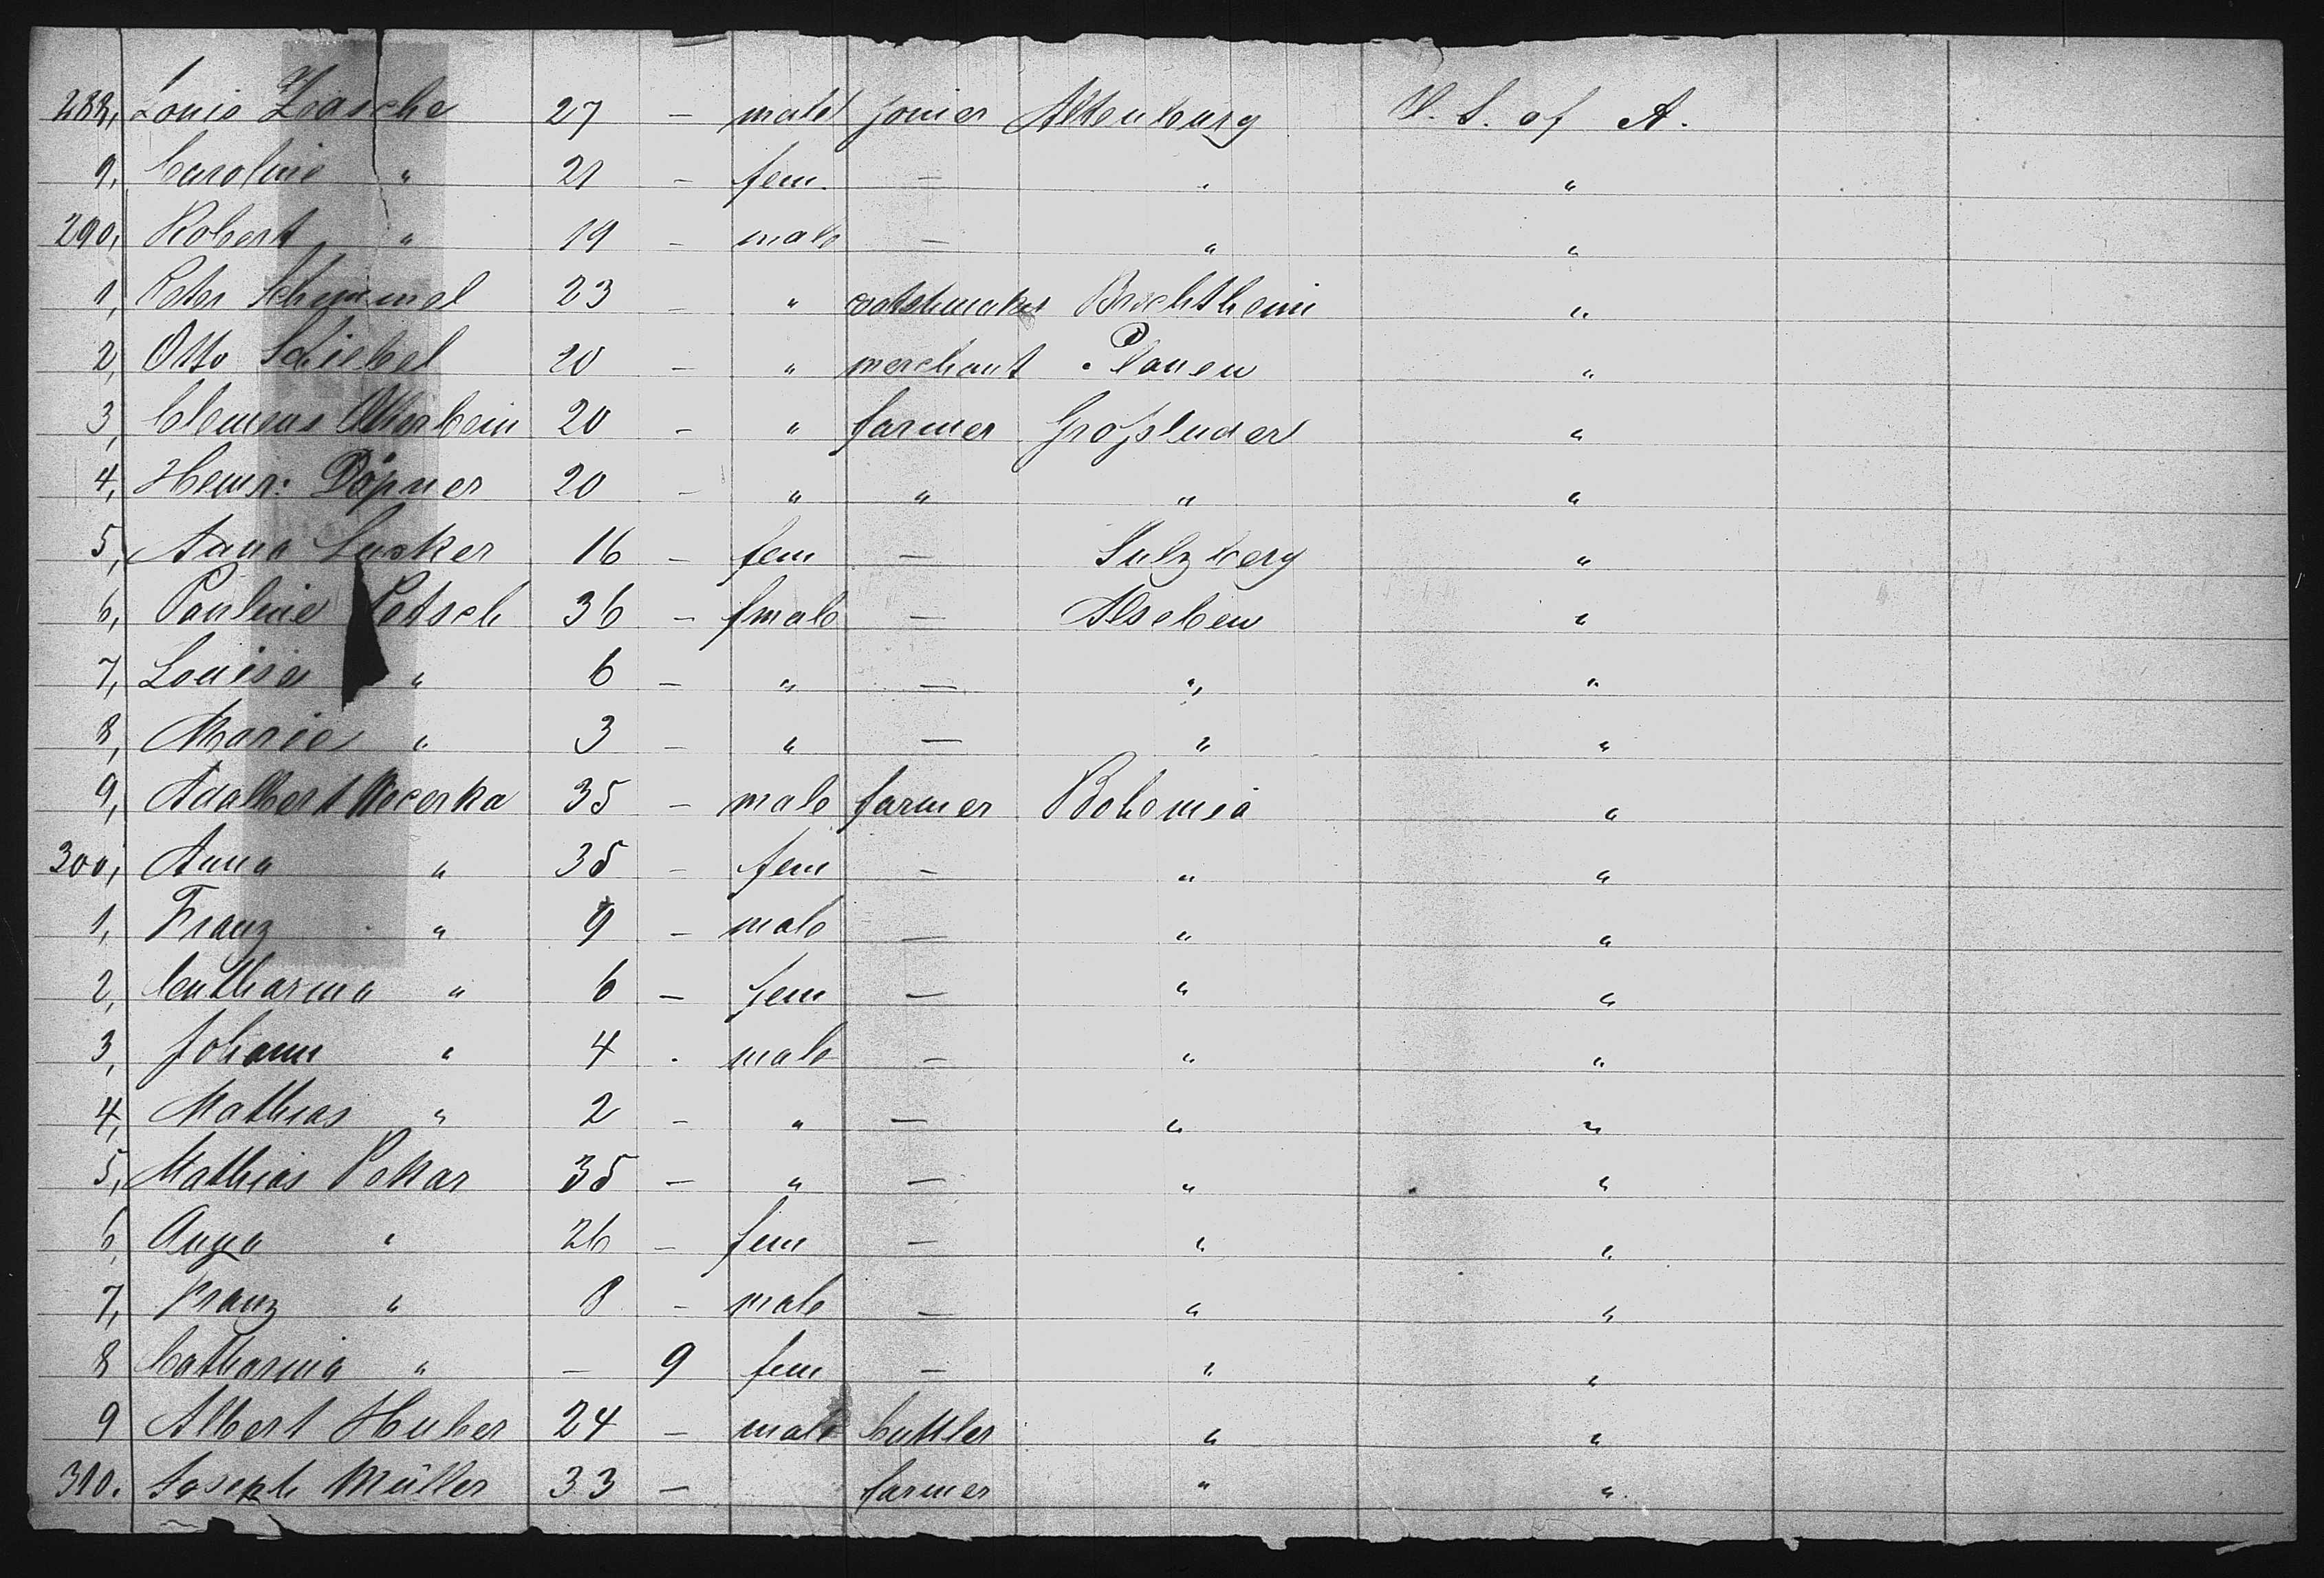 288, Louis Zoasche 27 — male joiner Altenburg U. S. of A.
9, Caroline " 21 — fem. — " "
290, Robert " 19 — male — " "
1, Peter Schimmel 23 — " watshmaker Bechtheim "
2, Otto Schiebel 20 — " merchant Plauen "
3, Clemens Otterbein 20 — " farmer Großluder "
4, Heinr: Döpner 20 — " " " "
5, Anna Lusker 16 — fem — Sulzberg "
6, Pauline Potsch 36 — fmale — Alsleben "
7, Louise " 6 — " — " "
8, Marie " 3 — " — " "
9, Adalbert Wecerka 35 — male farmer Bohemia "
300, Anna " 35 — fem — " "
1, Franz " 9 — male — " "
2, Catharina " 6 — fem — " "
3, Johann " 4 - male — " "
4, Mathias " 2 — " — " "
5, Mathias Pekar 35 — " — " "
6, Anna " 26 — fem — " "
7, Franz " 8 — male — " "
8 Catharina " — 9 fem — " "
9 Albert Huber 24 — male Cuttler " "
310. Joseph Müller 33 — farmer " "